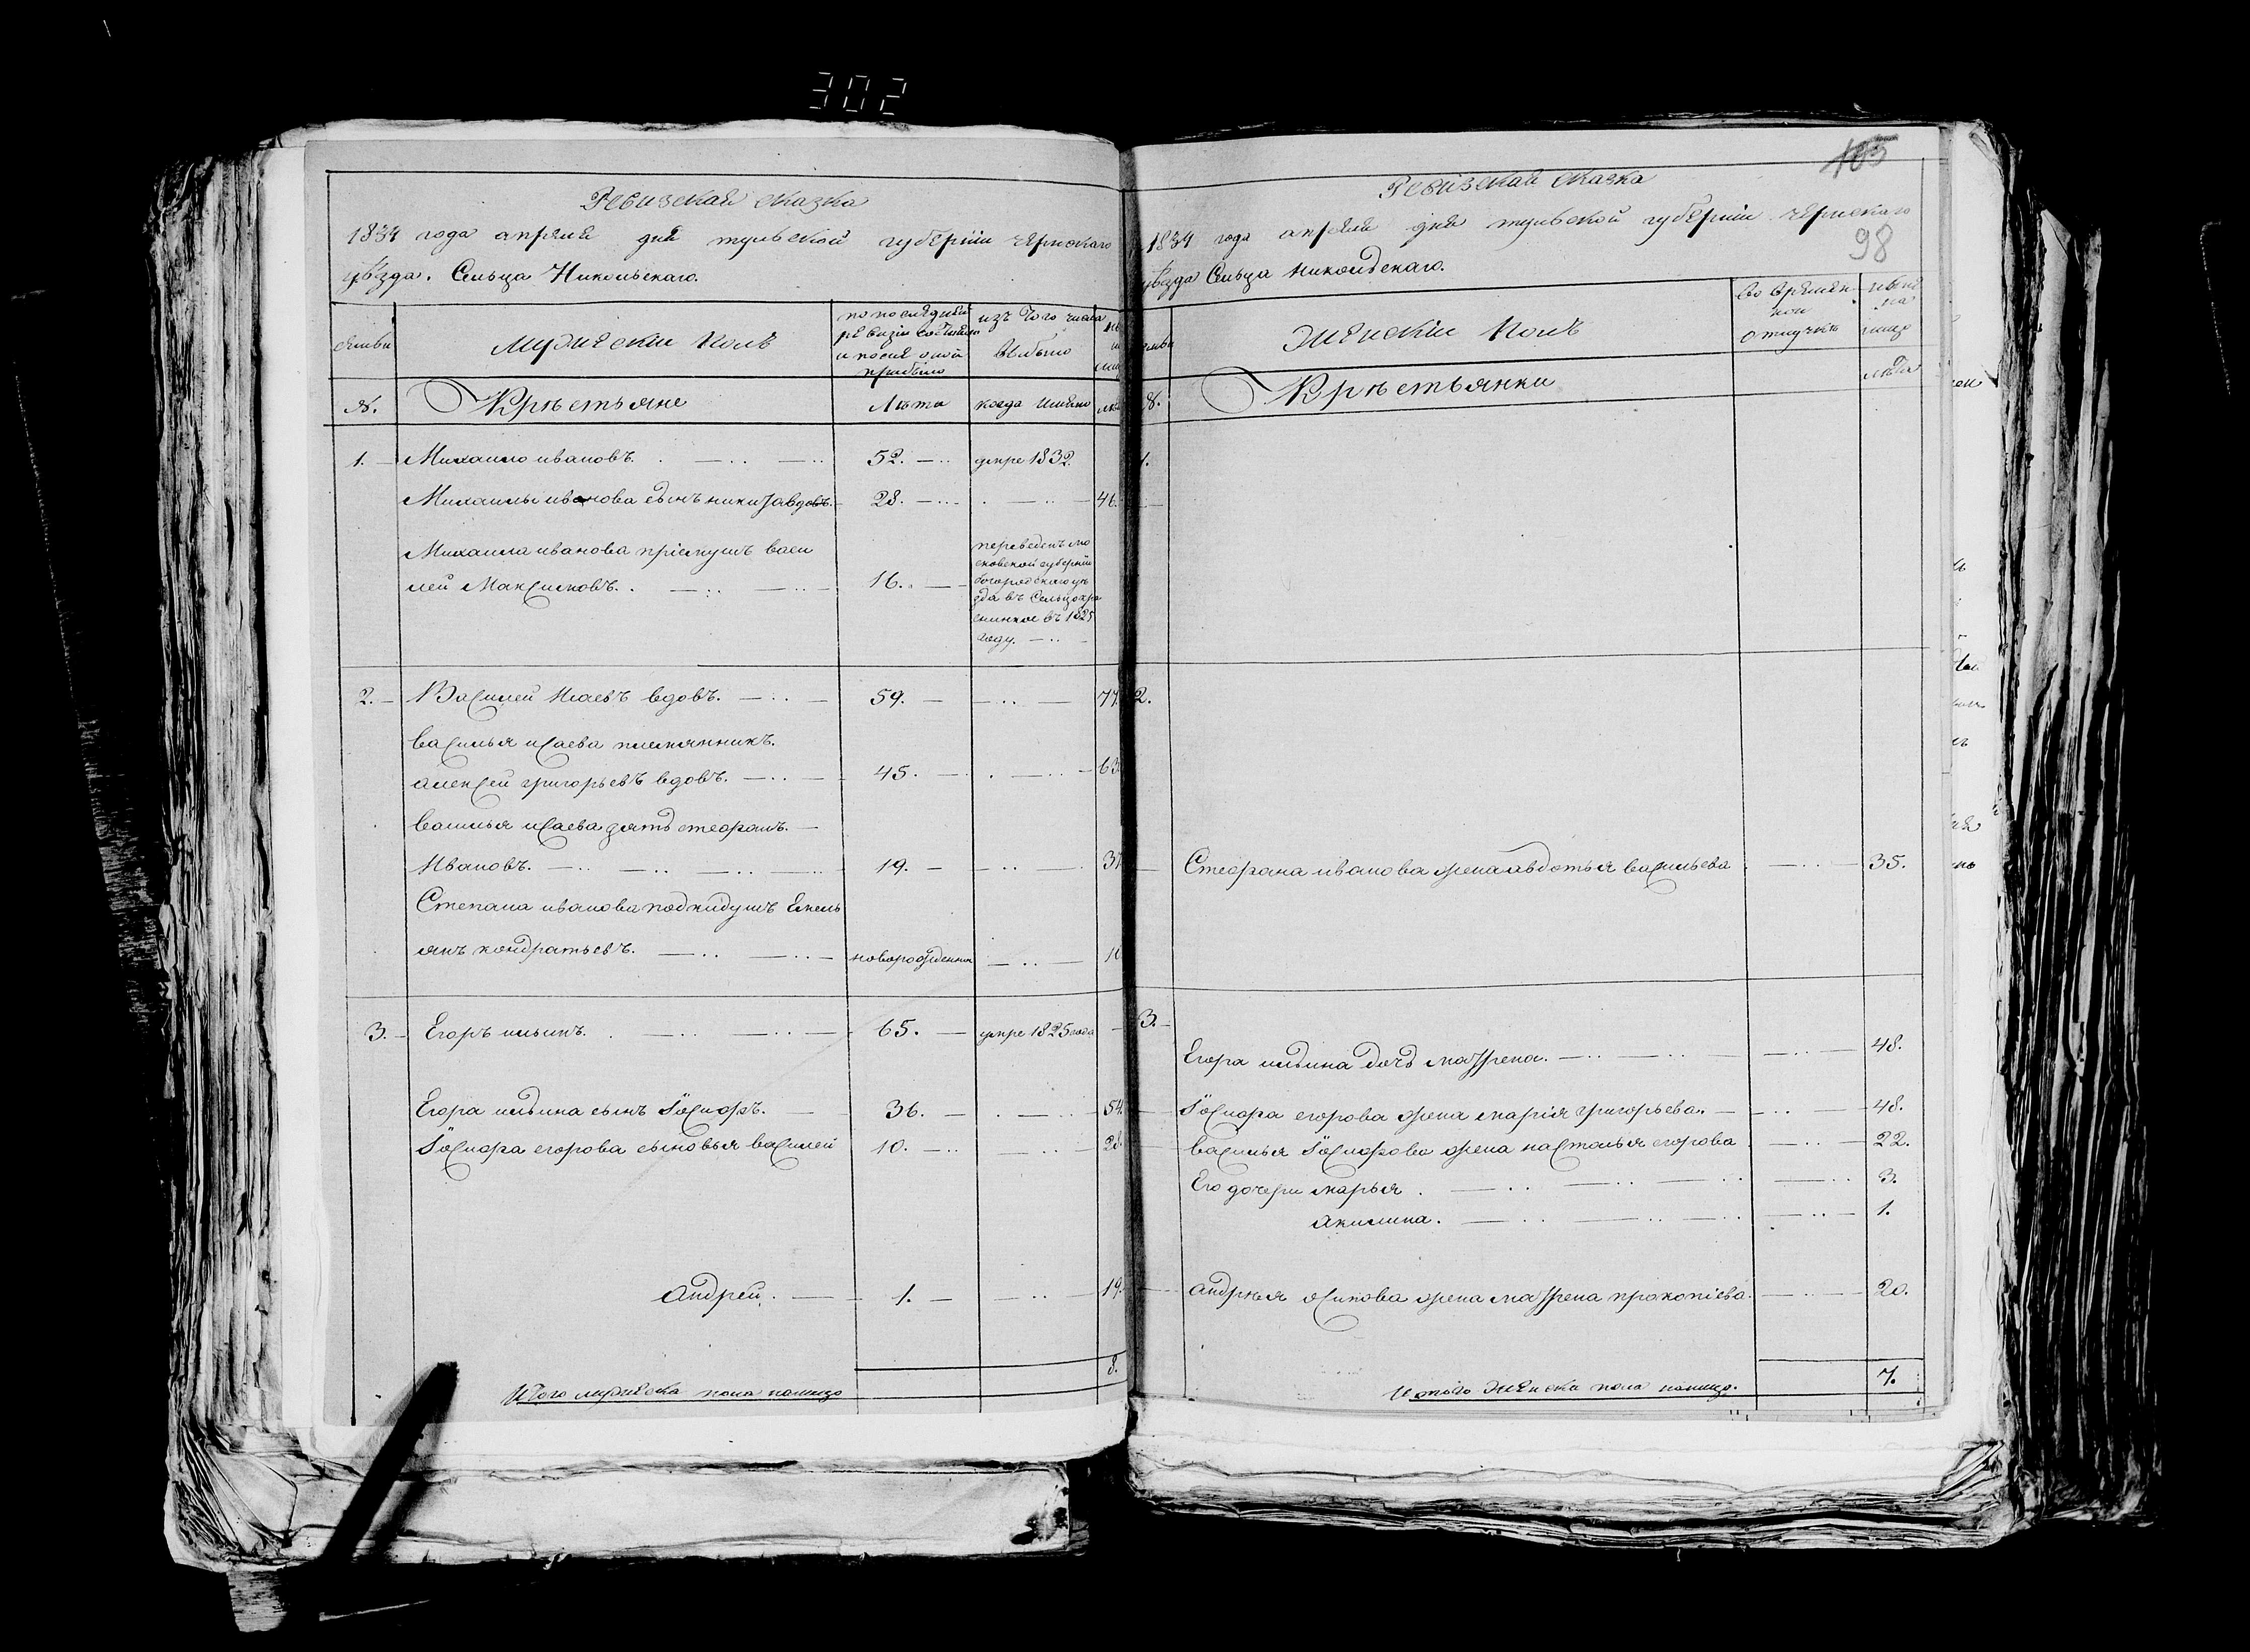 302
Ревизская сказка
1834 года апреля дня тульской губернiи чернскаго
уѣзда. Сельца Никольскаго.
семьи
Мужескiи Полъ
по последней
ревизiи состояло
и после оной
прибыло
изъ того числа
выбыло
№.
Крѣстьяне
Лѣта
когда имяно
1. Михаило ивановъ. 52. умре 1832.
Михаилы иванова сынъ никита вдовъ. 28. 46.
Михаила иванова прiемушъ васи
лей Максимовъ. 16.
переведенъ мо
сковской губернiи
богородскаго уѣ
зда въ Сельцо
въ 1825
году.
2. Василей Исаевъ вдовъ. 59. 77.
василья исаева племянникъ.
алексей григорьевъ вдовъ. 45. 63
василья исаева зять стефанъ.
Ивановъ. 19. 37
Степана иванова подкидушъ Емель
янъ кондратьевъ. новорожденной
3. Егоръ ильинъ. 65. умре 1825 года
Егора ильина сынъ Iосифъ. 36. 54.
Iосифа егорова сыновья василей 10. 28.
андрей. 1. 19.
8.
Итого мужеска пола налицо
105
98
Ревизская сказка
1834 года апреля дня тульской губернiи чернскаго
уѣзда Сельца Никольскаго.
семьи
Женскiи Полъ
во времян
ной
отлучке
ныне
на
лицо
№.
Крѣстьянки
лѣта
1.
2.
Стефана иванова жена авдотья васильева 35.
3.
Егора ильина дочь матрена. 48.
Iосифа егорова жена марiя григорьева. 48.
василья Iосифова жена настасья егорова 22.
Его дочери марья. 3.
акилина. 1.
андрѣя осипова жена матрена прокопiева. 20.
7.
Итого женска пола налицо.